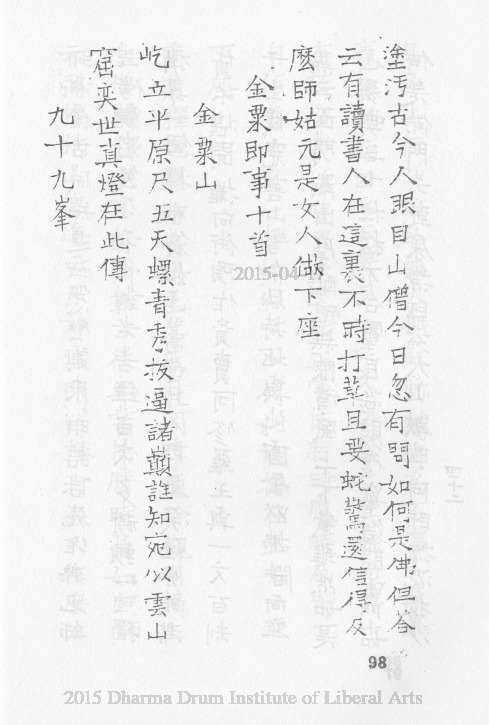 塗汚古今人眼目山僧今日忽有問如何是佛但荅
云有讀書人在這裏不時打草且要蛇驚還信得及
麽師姑元是女人做下座
金粟即事十首
金粟山
屹立平原尺五天螺青秀拔逼諸巔誰知宛似雲山
窟奕世真燈在此傳
九十九峯
98
2015-04-17
2015 Dharma Drum Institute of Liberal Arts